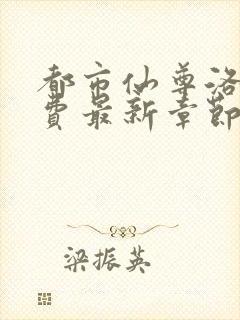 都市仙尊洛
費最新章節
梁振英